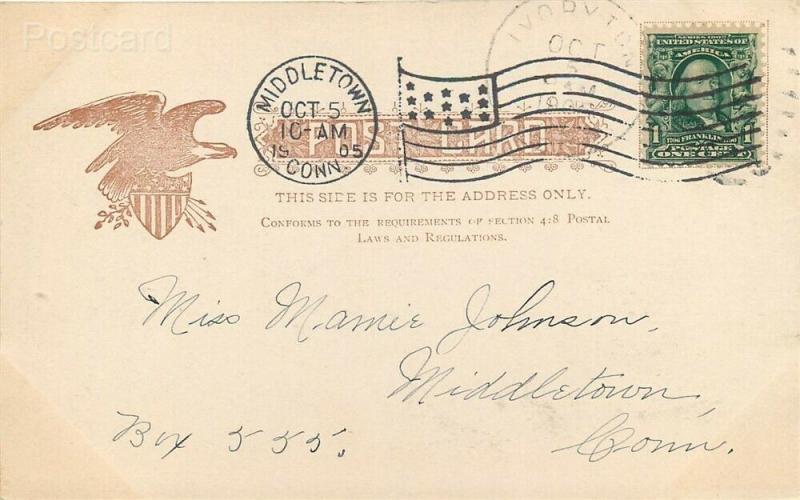 Postcard
MIDDLETOWN
OCT 5
10-AM
1905
CONN.
IVORYTON
OCT
5
AM
SERIES 1902
UNITED STATES OF
AMERICA
1 FRANKLIN
POSTAGE
ONE CENT
POSTAL CARD
THIS SIDE IS FOR THE ADDRESS ONLY.
CONFORMS TO THE REQUIREMENTS OF SECTION 418 POSTAL
LAWS AND REGULATIONS.
Miss Mamie Johnson,
Middletown,
Box 555. Conn.